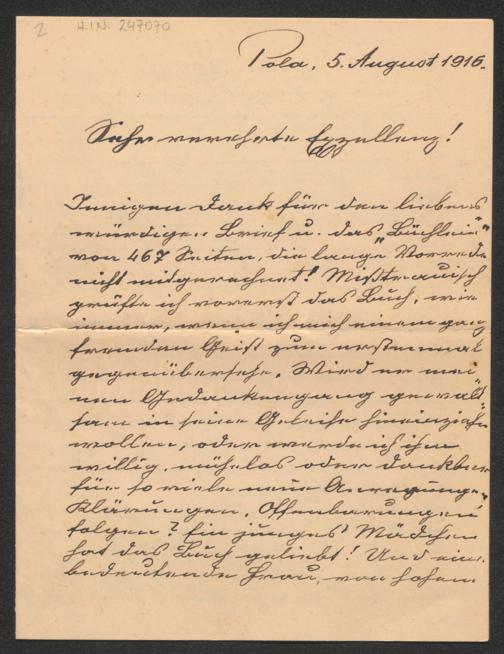 2
H.I.N. 247070
Pola, 5. August 1916.
Sehr verehrte Exzellenz!
Innigen Dank für den liebens
würdigen Brief u. das „Büchlein"
von 467 Seiten, die lange Vorrede
nicht mitgerechnet! Mißtrauisch
prüfte ich vorerst das Buch, wie
immer, wenn ich mich einem ganz
fremden Geist zum erstenmal
gegenübersehe. Wird er mei
nen Gedankengang gewalt
sam in seine Geleise hineinziehn
wollen, oder werde ich ihm
willig, mühelos oder dankbar
für so viele neue Anregungen
Klärungen, Offenbarungen
folgen? Ein junges Mädchen
hat das Buch geliebt! Und eine
bedeutende Frau, von hohem